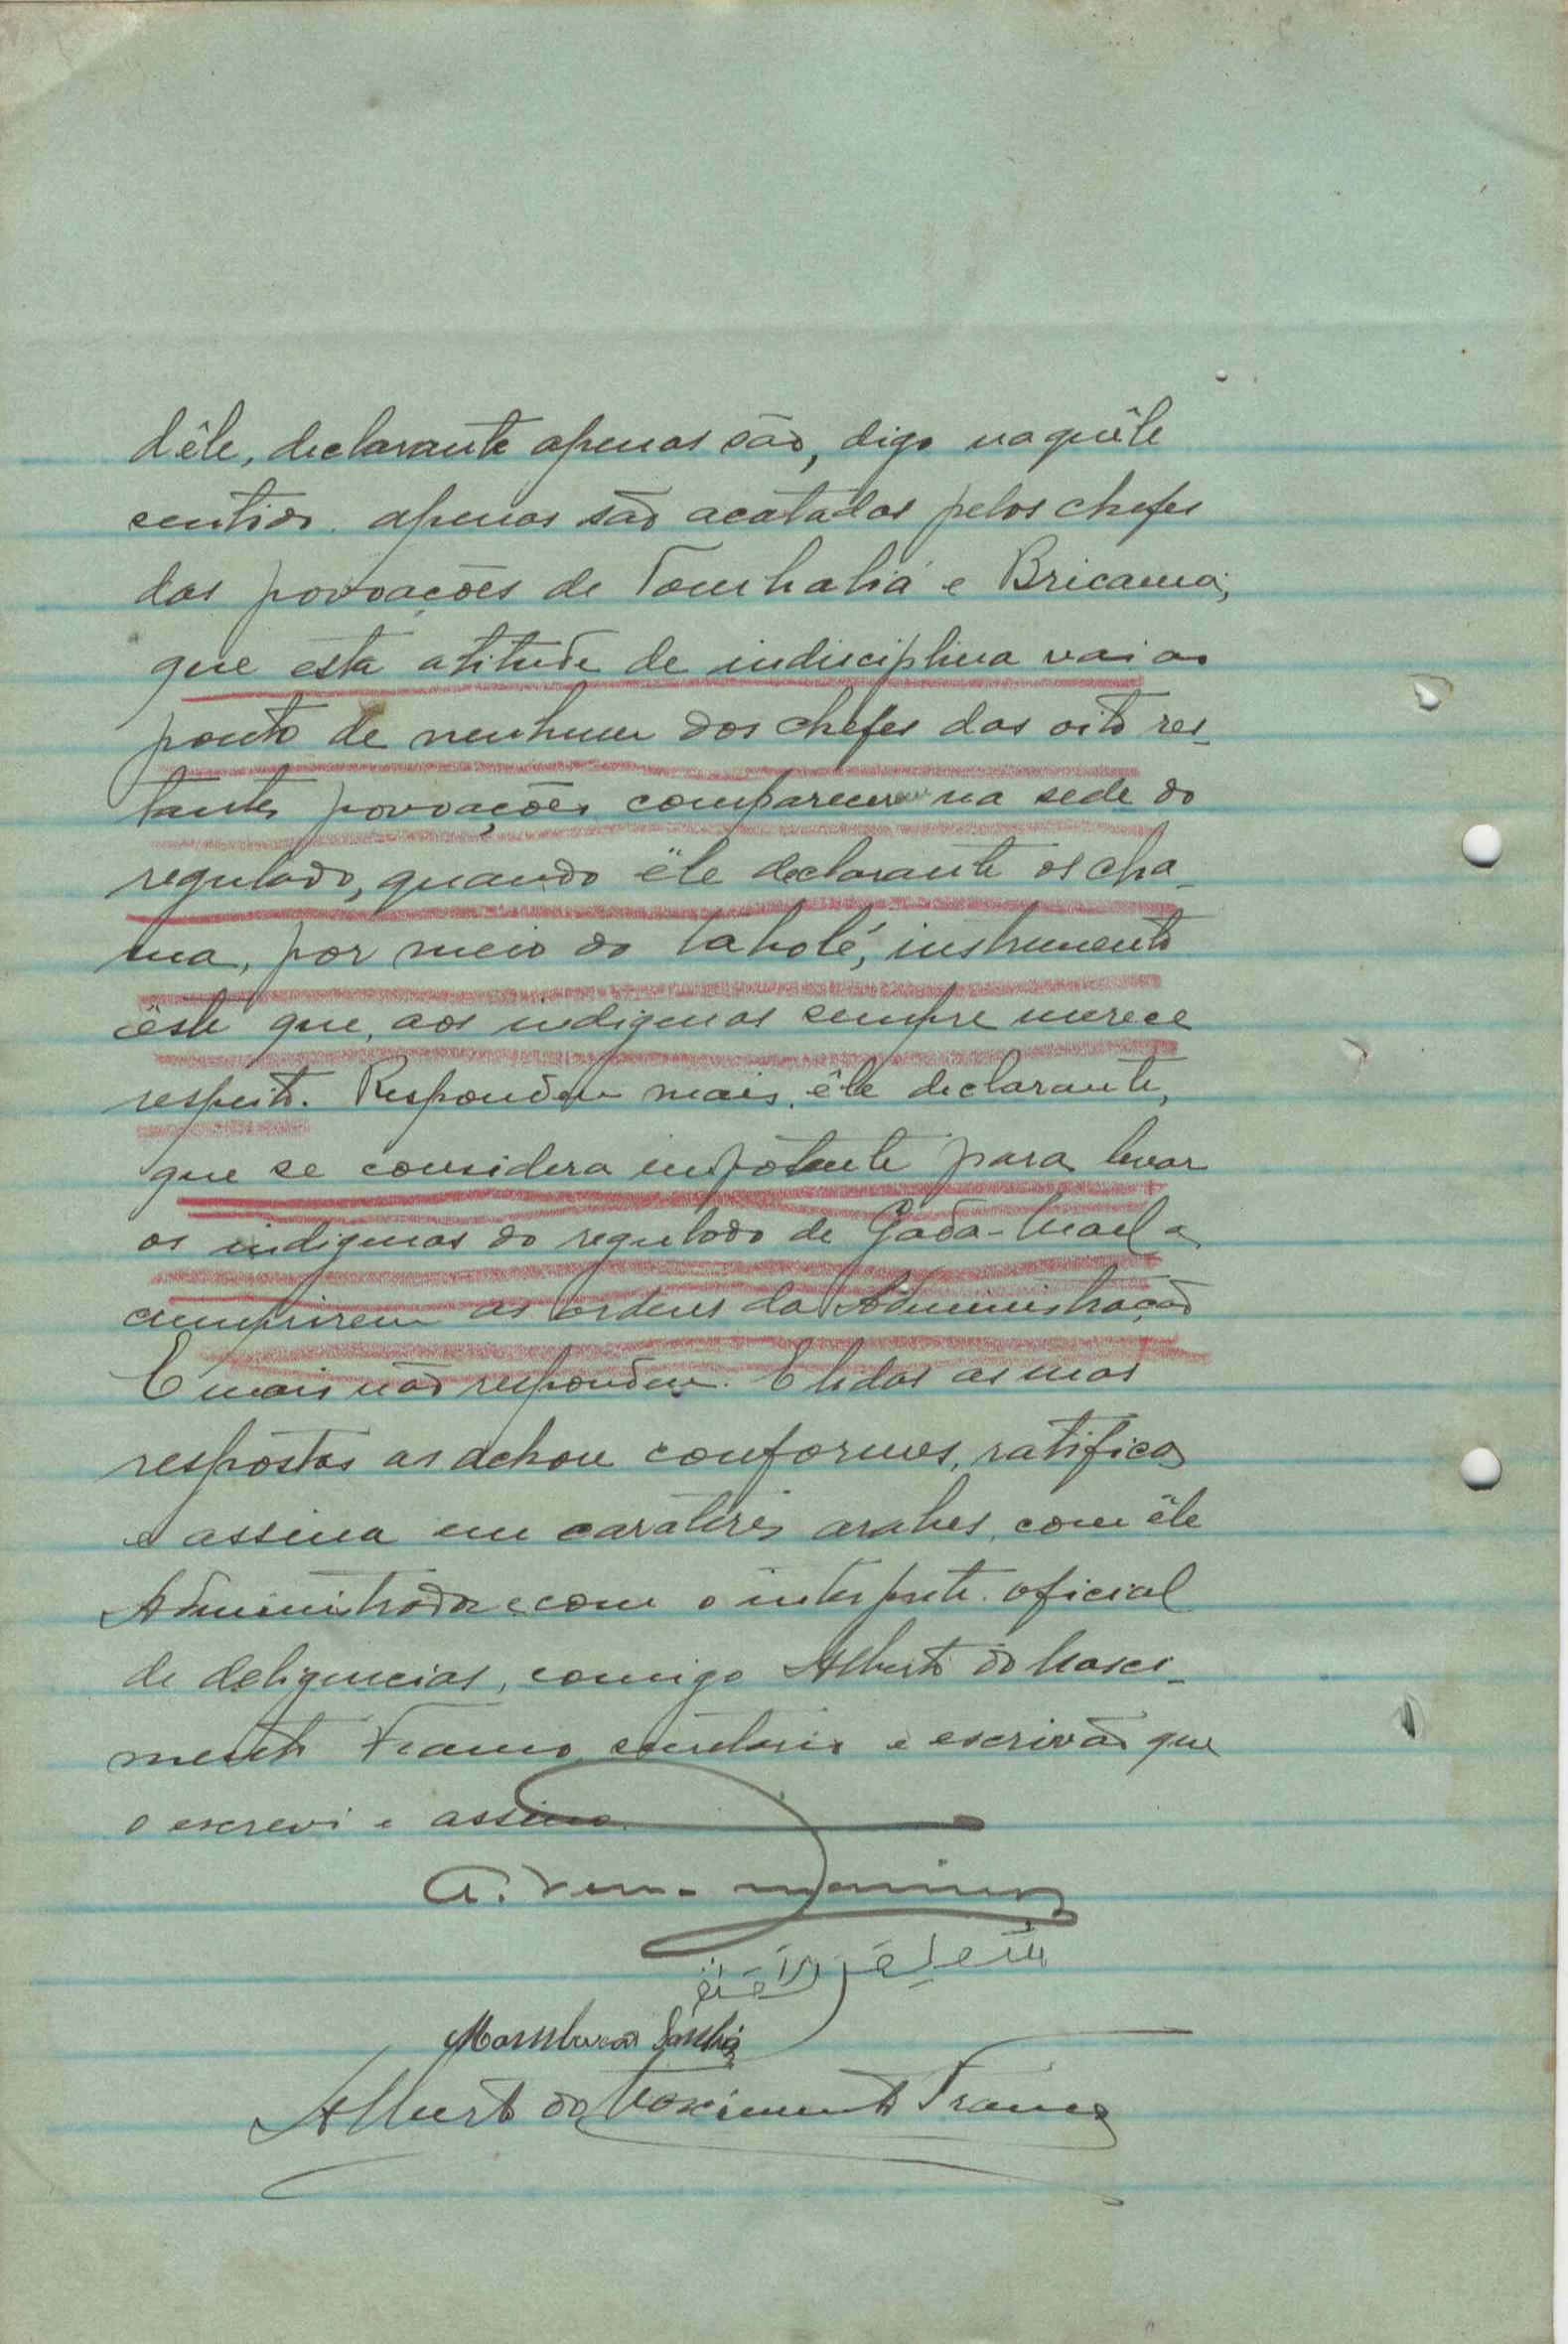 dêle, declarante apenas são, digo naquêle
sentido apenas são acatadas pelos chefes
das povoações de Tombaliá e Bricama;
que esta atitude de indisciplina vai ao
ponto de nenhum dos chefes das oito res-
tantes povoações comparecer na sede do
regulado, quando êle declarante os cha-
ma, por meio do tabolé, instrumento
êste que, aos indigenas sempre merece
respeito. Respondeu mais, êle declarante,
que se considera impotente para levar
os indigenas do regulado de Gada-Mael a
cumprirem as ordens da Administração
E mais não respondeu. E lidas as suas
respostas as achou conformes, ratifica
e assina em carateres arabes, com êle
Administrador e com o interprete oficial
de deligencias, comigo Alberto do Nasci-
mento Franco secretario e escrivão que
o escrevi e assino.
A.
Alberto do Nascimento Franco